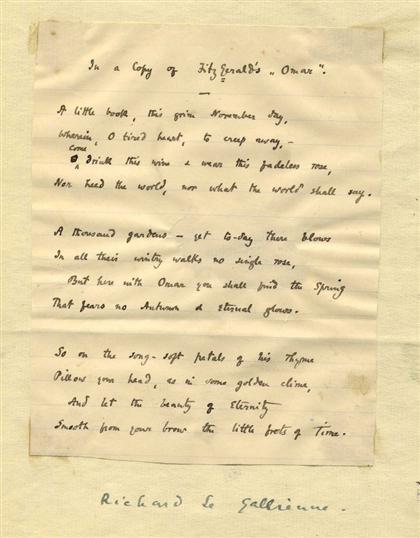 In a Copy of FitzGerald's „Omar".
A little book, this grim November day,
Wherein, O tired heart, to creep away, –
come
Drink this wine & wear this fadeless rose,
Nor heed the world, nor what the world shall say.
A thousand gardens – yet to-day there blows
In all their wintry walks no single rose,
But here with Omar you shall find the Spring
That fears no Autumn & Eternal glows.
So on the song-soft petals of his rhyme
Pillow your head, as in some golden clime,
And let the beauty of Eternity
Smooth from your brow the little frets of Time.
Richard Le Gallienne.